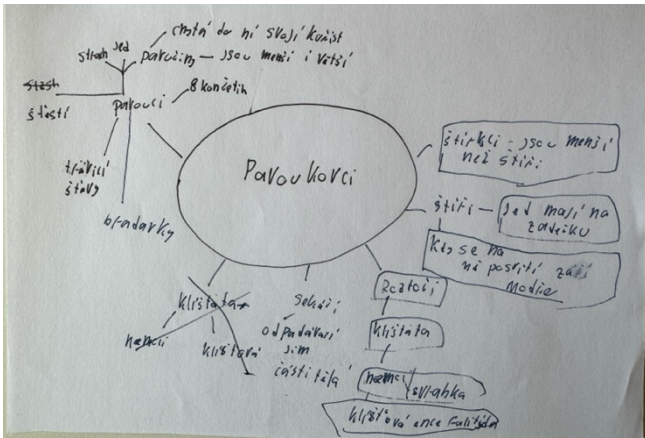 chytá do ní svojí kořist
strach jed
pavučiny - jsou menší i větší
8 končetin
pavouci
štěstí
trávicí
šťávy
bradavky
Pavoukovci
štírkci - jsou menší
než štíři
štíři - Jed mají na
zadečku
kdy se na
ně posvítí září
modře
Roztoči
klíšťata
nemoci
klíšťová
sekáči
odpadávají
jim
části těla
klíšťata
nemoci
svrabka
klíšťová